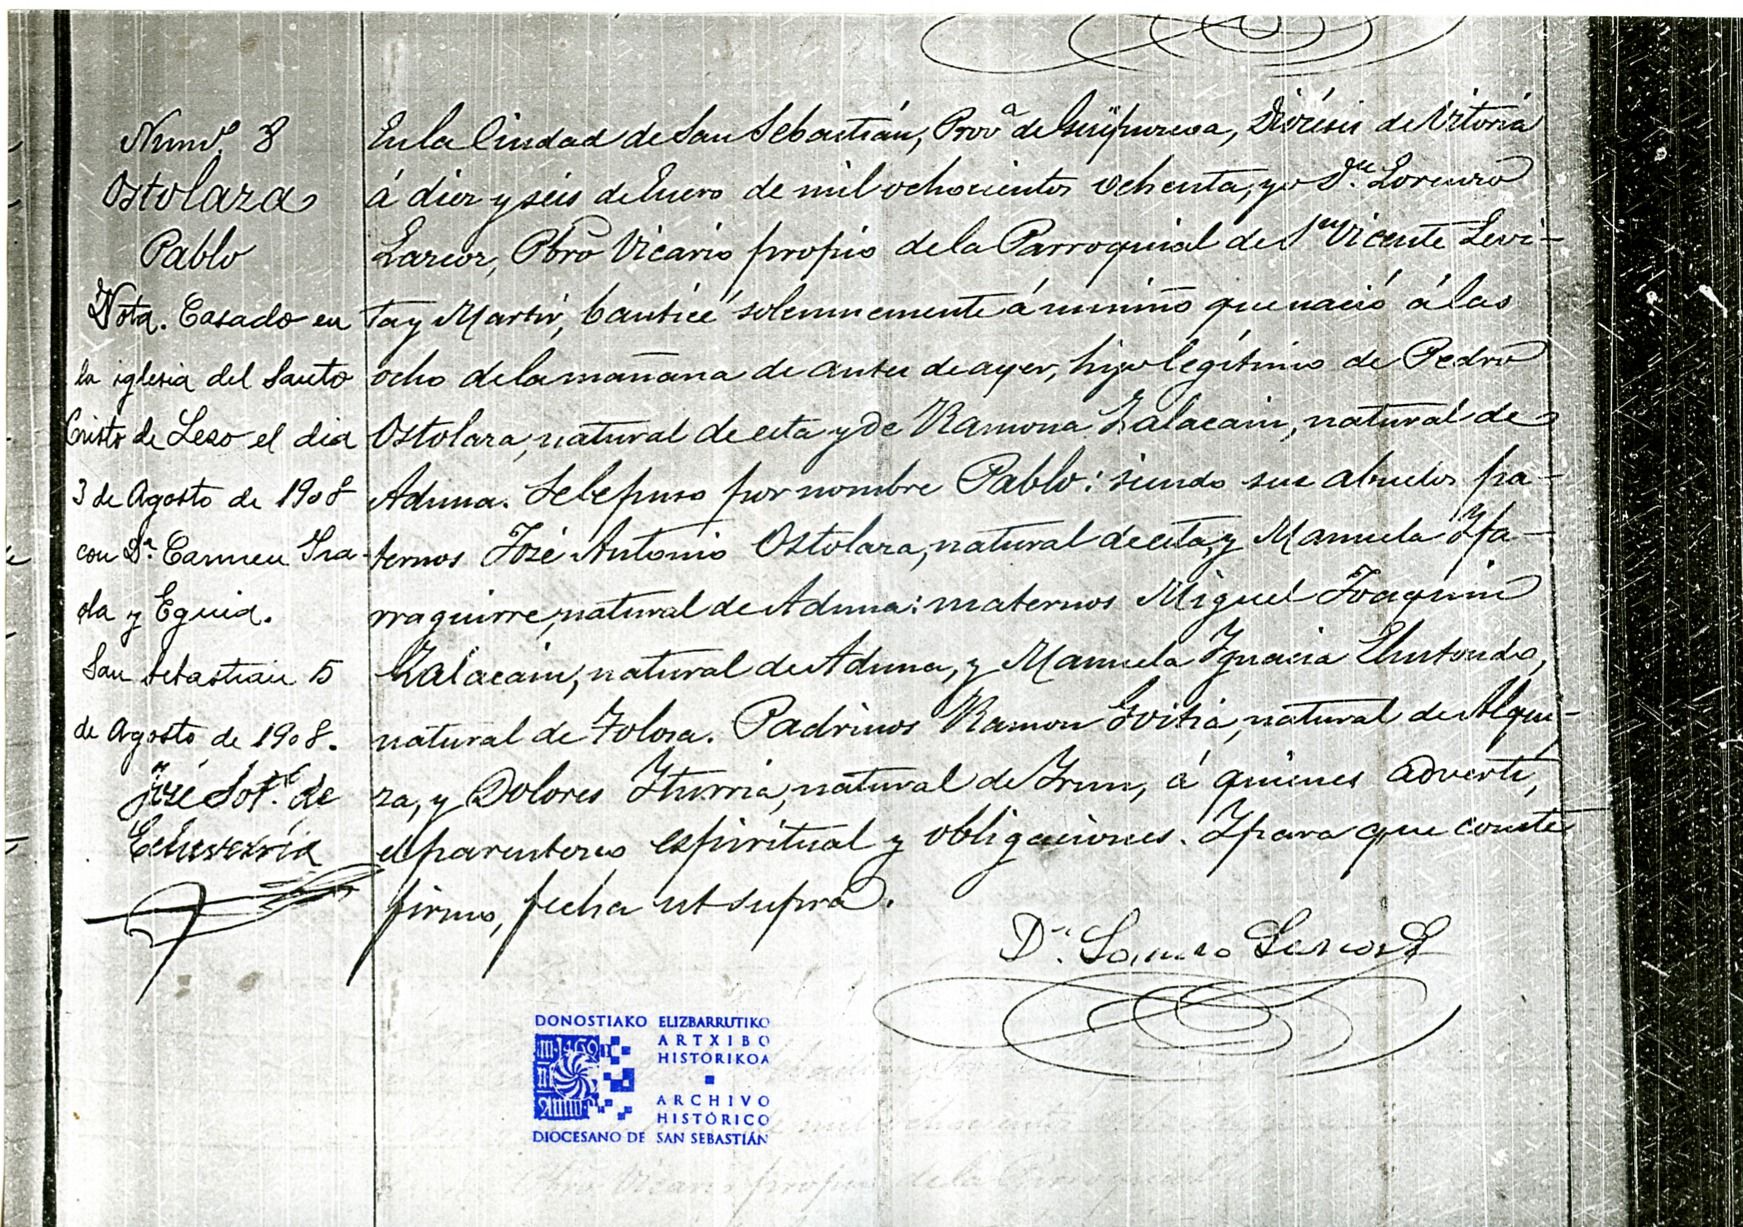 Numº 8
Ostolaza
Pablo
Nota. Casado en
la iglesia del Santo
Cristo de Lezo el dia
3 de Agosto de 1908
con Dª Carmen Ira-
ola y Eguia.
San Sebastian 5
de Agosto de 1908.
José de
Echeverria
En la Ciudad de San Sebastián, Provª de Guipuzcoa, Diócesis de Vitoria
á diez y seis de Enero de mil ochocientos ochenta, yo Dn Lorenzo
Larcor, Pbro Vicario propio de la Parroquial de Sn Vicente Levi-
ta y Martir, bauticé solemnemente á un niño que nació á las
ocho de la mañana de antes de ayer, hijo legítimo de Pedro
Ostolaza, natural de esta y de Ramona Zalacain, natural de
Aduna. Se le puso por nombre Pablo: siendo sus abuelos pa-
ternos José Antonio Ostolaza, natural de esta, y Manuela Yza-
rraguirre, natural de Aduna: maternos Miguel Joaquin
Zalacain, natural de Aduna, y Manuela Ygnacia Elustondo,
natural de Tolosa. Padrinos Ramon Goitia, natural de Alqui-
za, y Dolores Yturria, natural de Yrun, á quienes advertí,
el parentesco espiritual y obligaciones. Y para que conste
firmo, fecha ut supra.
Dn Lorenzo
DONOSTIAKO ELIZBARRUTIKO
ARTXIBO
HISTORIKOA
ARCHIVO
HISTÓRICO
DIOCESANO DE SAN SEBASTIÁN